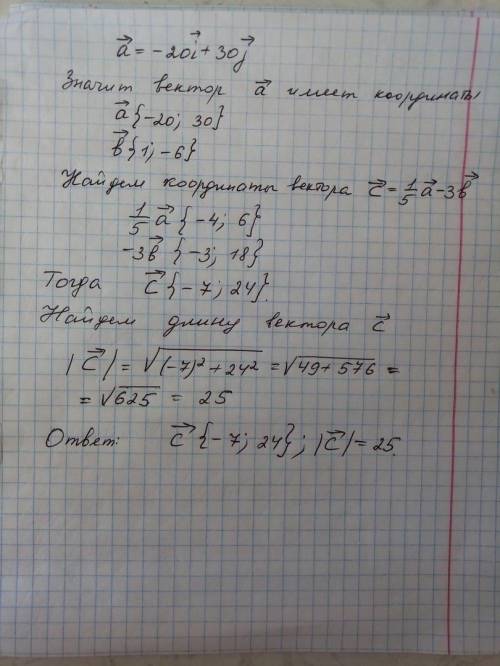 a⃗ = -20i⃗ + 30j⃗
Значит вектор a⃗ имеет координаты
a⃗ {-20; 30}
b⃗ {1; -6}
Найдем координаты вектора c⃗ = 1/5 a⃗ - 3b⃗
1/5 a⃗ {-4; 6}
-3b⃗ {-3; 18}
Тогда c⃗ {-7; 24}.
Найдем длину вектора c⃗
|c⃗| = √((-7)² + 24²) = √(49 + 576) =
= √625 = 25
Ответ: c⃗ {-7; 24}; |c⃗| = 25.